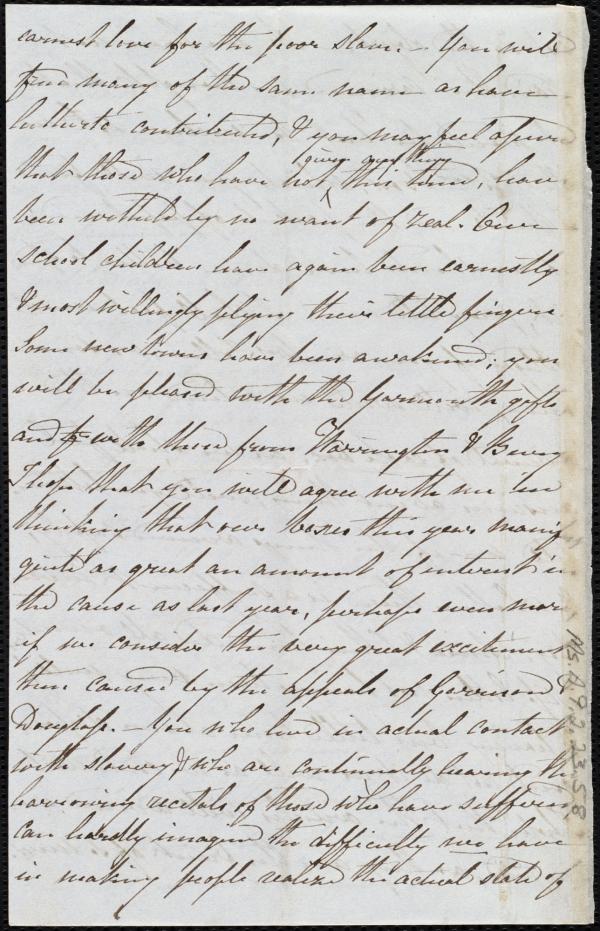 earnest love for the poor slave. – You will
find many of the same names as have
hitherto contributed, & you may feel assured
given anything
that those who have not ^ this time, have
been withheld by no want of zeal. Our
school children have again been earnestly
& most willingly plying their little fingers
Some new towns have been awakened; you
will be pleased with the Yarmouth gifts
and with those from Warrington & Bury
I hope that you will agree with me in
thinking that our boxes this year
quite as great an amount of interest in
the cause as last year, perhaps even more
if we consider the very great excitement
then caused by the appeals of Garrison &
Douglass. – You who live in actual contact
with slavery & who are continually hearing the
harrowing recitals of those who have suffered
can hardly imagine the difficulty we have
in making people realize the actual state of
Ms. A. 9. 2. 23. 58